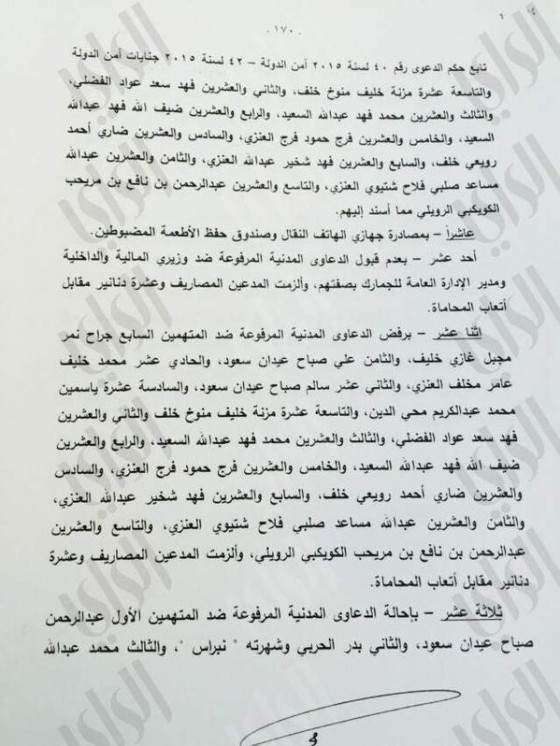 - ١٧٠ -
تابع حكم الدعوى رقم ٤٠ لسنة ٢٠١٥ أمن الدولة – ٤٢ لسنة ٢٠١٥ جنايات أمن الدولة
والتاسعة عشرة مزنة خليف منوخ خلف، والثاني والعشرين فهد سعد عواد الفضلي،
والثالث والعشرين محمد فهد عبدالله السعيد، والرابع والعشرين ضيف الله فهد عبدالله
السعيد، والخامس والعشرين فرج حمود فرج العنزي، والسادس والعشرين ضاري أحمد
رويعي خلف، والسابع والعشرين فهد شخير عبدالله العنزي، والثامن والعشرين عبدالله
مساعد صلبي فلاح شتيوي العنزي، والتاسع والعشرين عبدالرحمن بن نافع بن مريحب
الكويكبي الرويلي مما أسند إليهم.
عاشراً – بمصادرة جهازي الهاتف النقال وصندوق حفظ الأطعمة المضبوطين.
أحد عشر – بعدم قبول الدعاوى المدنية المرفوعة ضد وزيري المالية والداخلية
ومدير الإدارة العامة للجمارك بصفتهم، وألزمت المدعين المصاريف وعشرة دنانير مقابل
أتعاب المحاماة.
اثنا عشر – برفض الدعاوى المدنية المرفوعة ضد المتهمين السابع جراح نمر
مجبل غازي خليف، والثامن علي صباح عيدان سعود، والحادي عشر محمد خليف
عامر مخلف العنزي، والثاني عشر سالم صباح عيدان سعود، والسادسة عشرة ياسمين
محمد عبدالكريم محي الدين، والتاسعة عشرة مزنة خليف منوخ خلف والثاني والعشرين
فهد سعد عواد الفضلي، والثالث والعشرين محمد فهد عبدالله السعيد، والرابع والعشرين
ضيف الله فهد عبدالله السعيد، والخامس والعشرين فرج حمود فرج العنزي، والسادس
والعشرين ضاري أحمد رويعي خلف، والسابع والعشرين فهد شخير عبدالله العنزي،
والثامن والعشرين عبدالله مساعد صلبي فلاح شتيوي العنزي، والتاسع والعشرين
عبدالرحمن بن نافع بن مريحب الكويكبي الرويلي، وألزمت المدعين المصاريف وعشرة
دنانير مقابل أتعاب المحاماة.
ثلاثة عشر – بإحالة الدعاوى المدنية المرفوعة ضد المتهمين الأول عبدالرحمن
صباح عيدان سعود، والثاني بدر الحربي وشهرته " نبراس "، والثالث محمد عبدالله
الراي